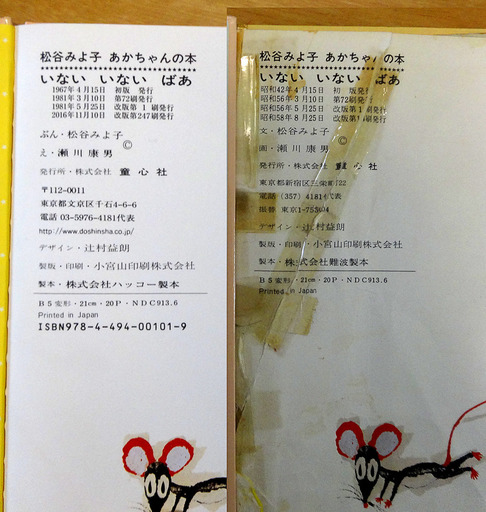 松谷みよ子 あかちゃんの本
いない いない ばあ
1967年4月15日 初版 発行
1981年3月10日 第72刷発行
1981年5月25日 改版第1刷発行
2016年11月10日 改版第247刷発行
ぶん・松谷みよ子
©
え・瀬川康男
発行所・株式会社 童心社
〒112-0011
東京都文京区千石4-6-6
電話 03-5976-4181代表
http://www.doshinsha.co.jp/
デザイン・辻村益朗
製版・印刷・小宮山印刷株式会社
製本・株式会社ハッコー製本
B5変形・21cm・20P・NDC913.6
Printed in Japan
ISBN978-4-494-00101-9
松谷みよ子 あかちゃんの本
いない いない ばあ
昭和42年4月15日 初 版発行
昭和56年3月10日 第72刷発行
昭和56年5月25日 改版第1刷発行
昭和58年8月25日 改版第 刷発行
文・松谷みよ子
©
画・瀬川康男
発行所・株式会社 童心社
東京都新宿区三栄町22
電話 (357) 4181代表
振替 東京1-
デザイン・辻村益朗
製版・印刷・小宮山印刷株式会社
製本・株式会社難波製本
B5変形・21cm・20P・NDC913.6
Printed in Japan